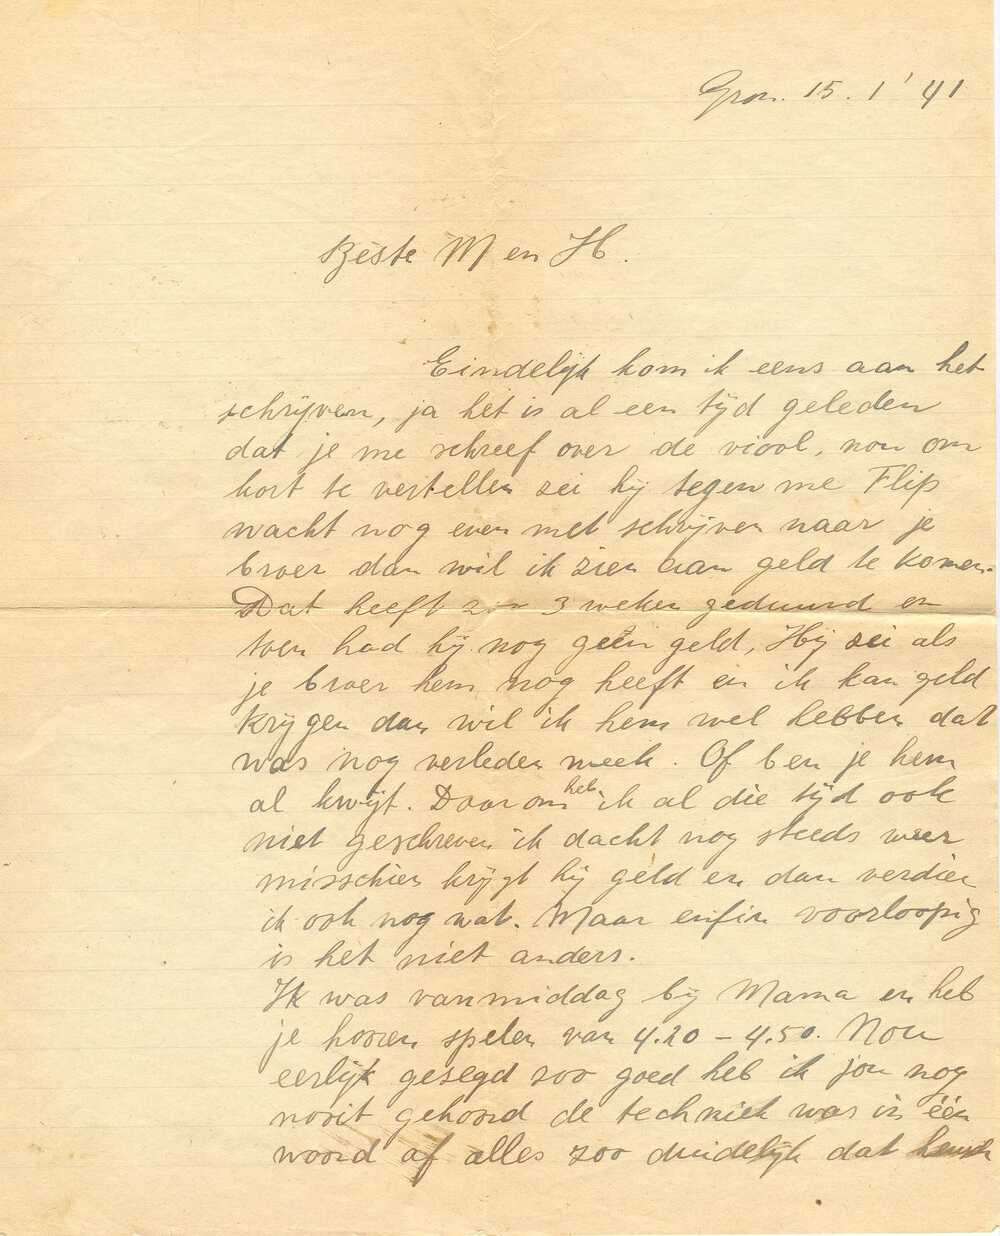 Gron. 15.1'41
Beste M en H.
Eindelijk kom ik eens aan het
schrijven, ja het is al een tijd geleden
dat je me schreef over de viool, nou om
kort te vertellen zei hij tegen me Flip
wacht nog even met schrijven naar je
broer dan wil ik zien aan geld te komen.
Dat heeft zoo 3 weken geduurd en
toen had hij nog geen geld, Hij zei als
je broer hem nog heeft en ik kan geld
krijgen dan wil ik hem wel hebben dat
was nog verleden week. Of ben je hem
al kwijt. Daarom heb ik al die tijd ook
niet geschreven ik dacht nog steeds weer
misschien krijgt hij geld en dan verdien
ik ook nog wat. Maar enfin voorloopig
is het niet anders.
Ik was vanmiddag bij Mama en heb
je hooren spelen van 4.20 - 4.50. Nou
eerlijk gesegd zoo goed heb ik jou nog
nooit gehoord de techniek was in één
woord af alles zoo duidelijk dat